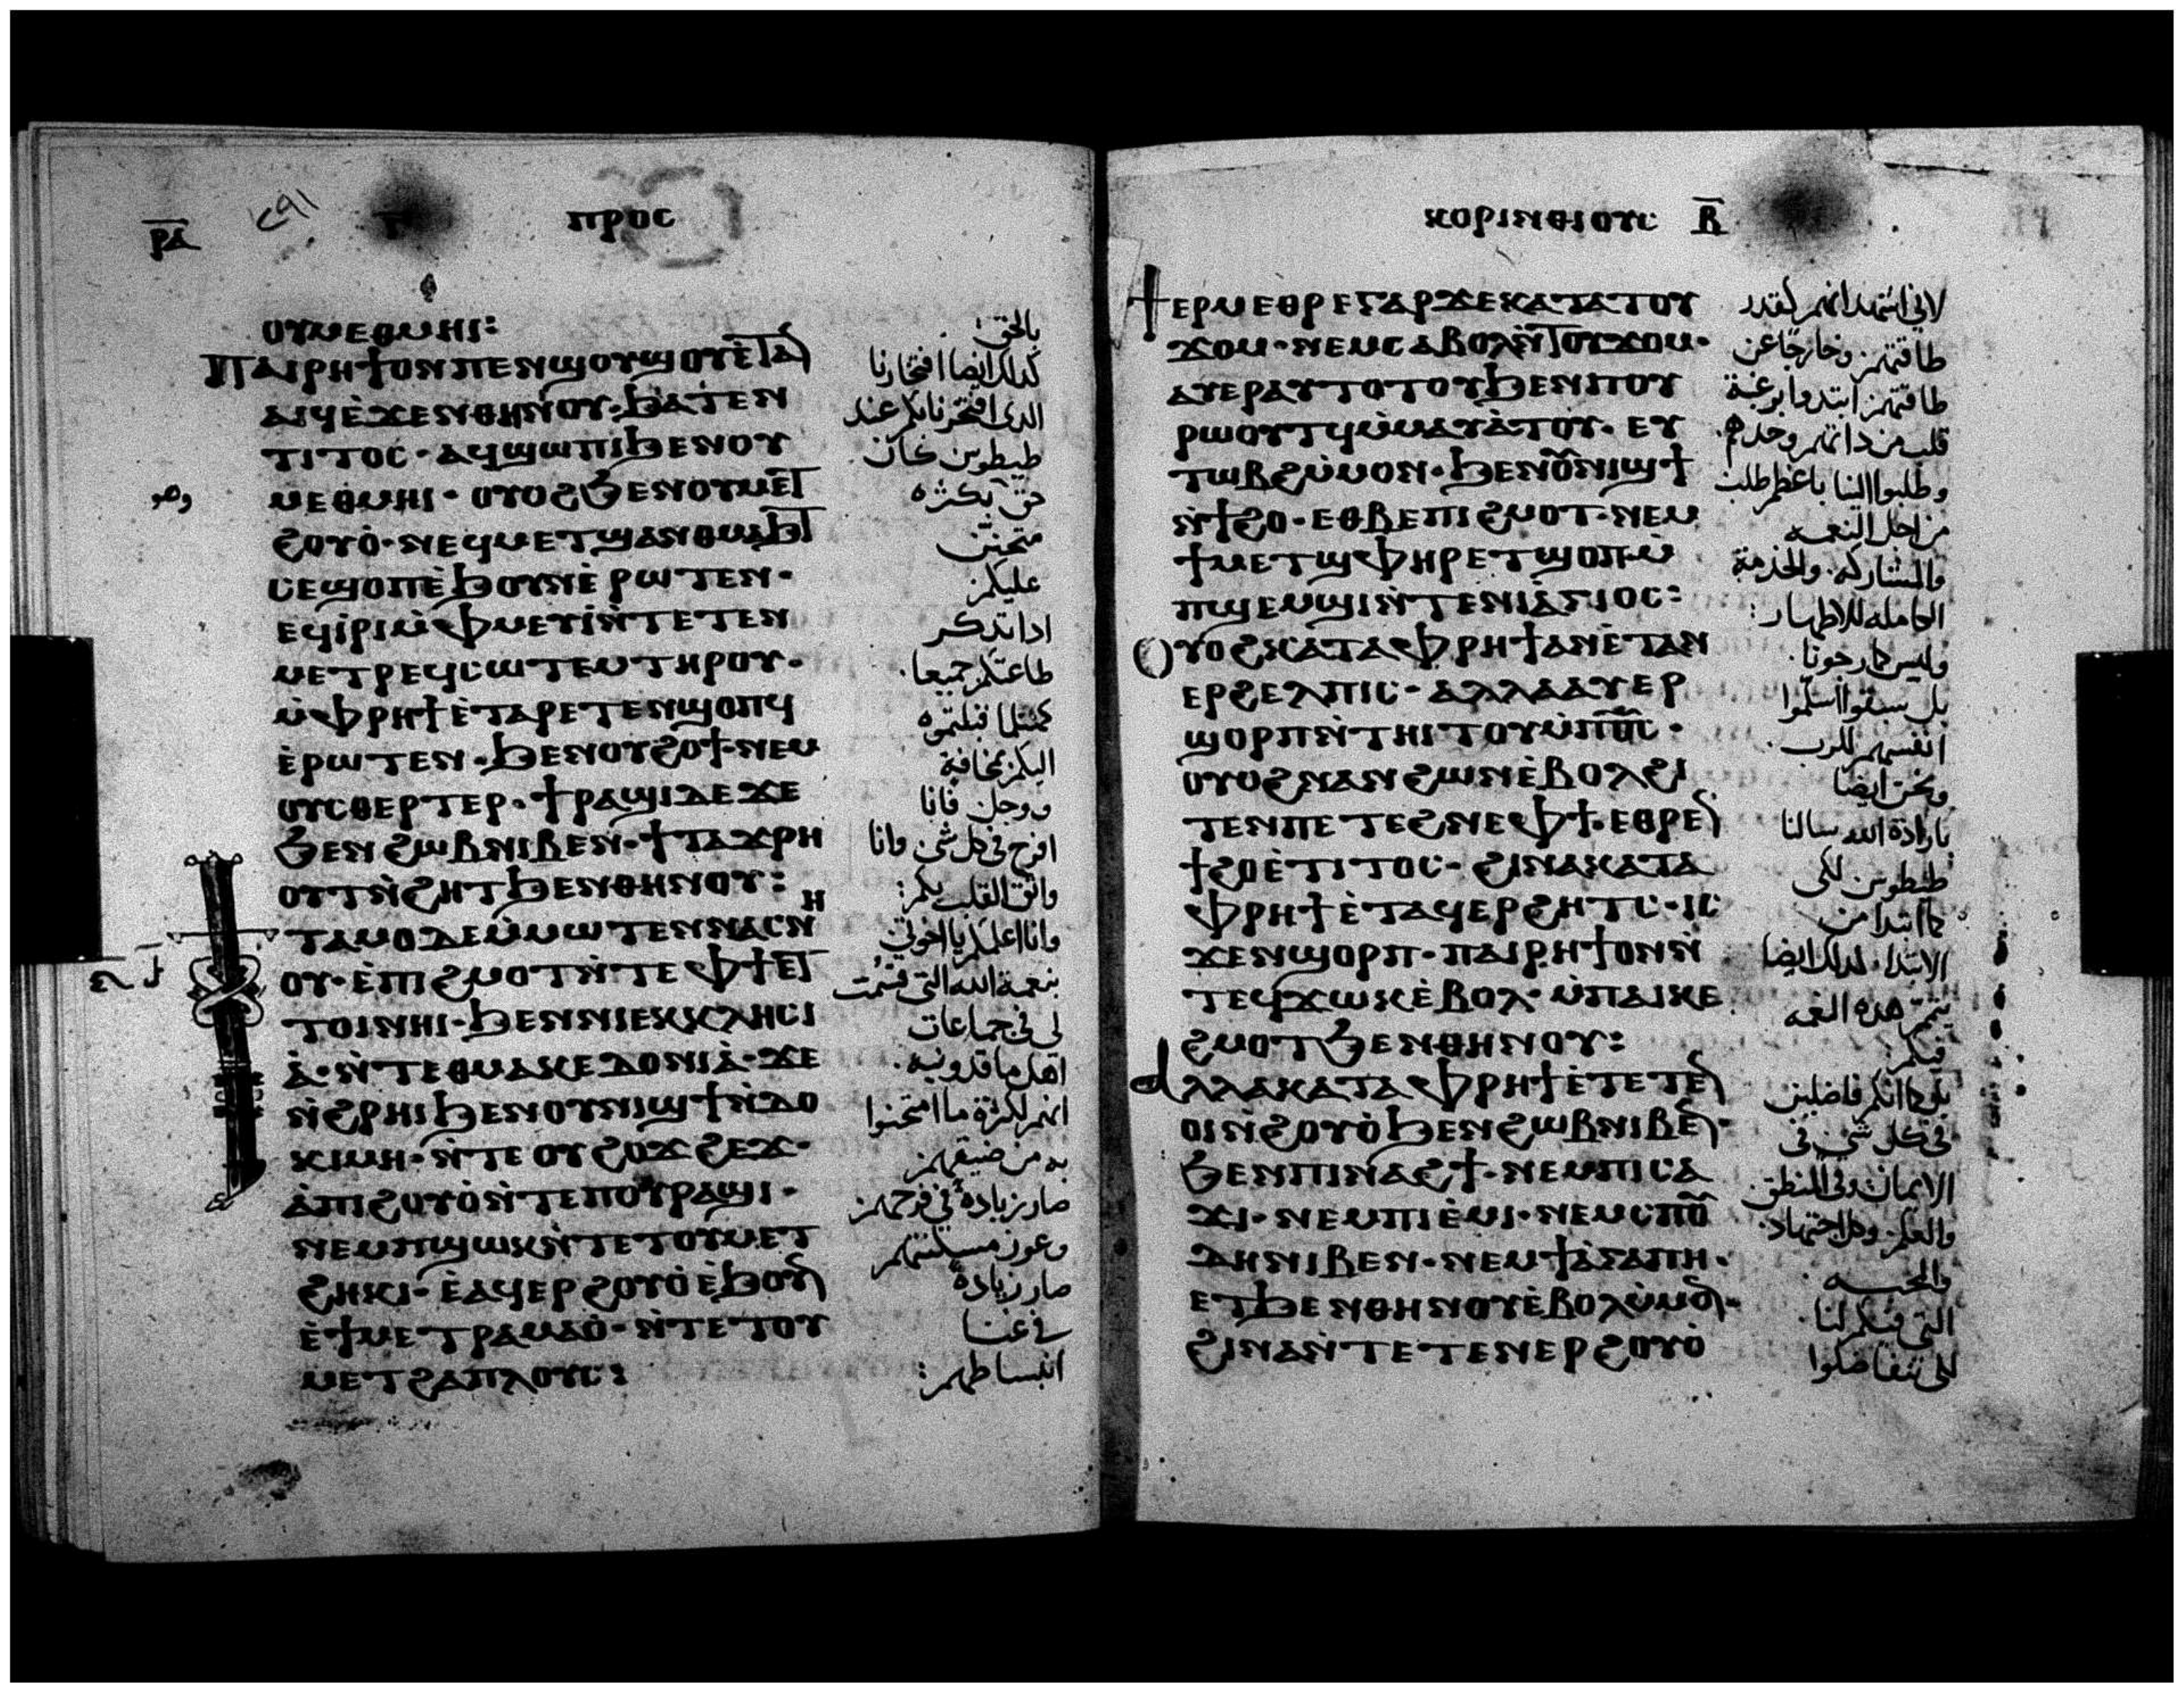 ⲣ̅ⲁ̅
ⲡⲣⲟⲥ
ⲟⲩⲙⲉⲑⲙⲏⲓ:
ⲡⲁⲓⲣⲏϯⲟⲛⲡⲉⲛϣⲟⲩϣⲟⲩⲉ̀ⲧⲁ
ⲁⲓϥⲉ̀ϫⲉⲛⲑⲏⲛⲟⲩ·ϧⲁⲧⲉⲛ
ⲧⲓⲧⲟⲥ·ⲁϥϣⲱⲡⲓϧⲉⲛⲟⲩ
ⲙⲉⲑⲙⲏⲓ·ⲟⲩⲟϩϧⲉⲛⲟⲩⲙⲉⲧ
ϩⲟⲩⲟ̀·ⲛⲉϥⲙⲉⲧϣⲁⲛⲑⲙⲁϧⲧ
ⲥⲉϣⲟⲡⲉ̀ϧⲟⲩⲛⲉ̀ⲣⲱⲧⲉⲛ·
ⲉϥⲓ̀ⲣⲓⲙ̀ⲫⲙⲉⲩⲓ̀ⲛ̀ⲧⲉⲧⲉⲛ
ⲙⲉⲧⲣⲉϥⲥⲱⲧⲉⲙⲧⲏⲣⲟⲩ·
ⲙ̀ⲫⲣⲏϯⲉ̀ⲧⲁⲣⲉⲧⲉⲛϣⲟⲡϥ
ⲉ̀ⲣⲱⲧⲉⲛ·ϧⲉⲛⲟⲩϩⲟϯ·ⲛⲉⲙ
ⲟⲩⲥⲑⲉⲣⲧⲉⲣ·ϯⲣⲁϣⲓⲇⲉϫⲉ
ϧⲉⲛϩⲱⲃⲛⲓⲃⲉⲛ·ϯⲧⲁϫⲣⲏ
ⲟⲩⲧⲛ̀ϩⲏⲧϧⲉⲛⲑⲏⲛⲟⲩ:
ⲏ
ⲧⲁⲙⲟⲇⲉⲙ̀ⲙⲱⲧⲉⲛⲛⲁⲥⲛ
ⲟⲩ·ⲉ̀ⲡⲓϩⲙⲟⲧⲛ̀ⲧⲉⲫϯⲉⲧ
ⲧⲟⲓⲛⲏⲓ·ϧⲉⲛⲛⲓⲉⲕⲕⲗⲏⲥⲓ
ⲁ̀·ⲛ̀ⲧⲉⲑⲙⲁⲕⲉⲇⲟⲛⲓⲁ̀·ϫⲉ
ⲛ̀ϩⲣⲏⲓϧⲉⲛⲟⲩⲛⲓϣϯⲛ̀ⲇⲟ
ⲕⲓⲙⲏ·ⲛ̀ⲧⲉⲟⲩϩⲟϫϩⲉϫ·
ⲁ̀ⲡⲓϩⲟⲩⲟ̀ⲛ̀ⲧⲉⲡⲟⲩⲣⲁϣⲓ·
ⲛⲉⲙⲡϣⲱⲕⲛ̀ⲧⲉⲧⲟⲩⲙⲉⲧ
ϩⲏⲕⲓ·ⲉ̀ⲁϥⲉⲣϩⲟⲩⲟ̀ⲉ̀ϧⲟⲩⲛ
ⲉ̀ϯⲙⲉⲧⲣⲁⲙⲁⲟ̀·ⲛ̀ⲧⲉⲧⲟⲩ
ⲙⲉⲧϩⲁⲡⲗⲟⲩⲥ:
بالحق:
كذلك ايضا افتخارنا
الذى افتخرنا بكم عند
طيطوس كان
حق بكثره
وهو
متحنن
عليكم
اذا تذكر
طاعتكم جميعا·
كمثلما قبلتموه
اليكم بمخافة
ووجل فانا
افرح فى كل شى وانا
واثق القلب بكم:
وانا اعلمكم يا اخوتى
بنعمة الله التى قسمت
لى فى جماعات
اهل ماقدونيه·
انهم لكثرة ما امتحنوا
به من ضيقهم
صار زيادة فى فرحهم
وعوز مسكنتهم
صار زيادة
فى غنا
انبساطهم:
ⲕⲟⲣⲓⲛⲑⲓⲟⲩⲥ ⲃ̅
ϯⲉⲣⲙⲉⲑⲣⲉⲅⲁⲣϫⲉⲕⲁⲧⲁⲧⲟⲩ
ϫⲟⲙ·ⲛⲉⲙⲥⲁⲃⲟⲗⲛ̀ⲧⲟⲩϫⲟⲙ·
ⲁⲩⲉⲣⲁⲩⲧⲟⲧⲟⲩϧⲉⲛⲡⲟⲩ
ⲣⲱⲟⲩⲧϥⲙ̀ⲙⲁⲩⲁ̀ⲧⲟⲩ·ⲉⲩ
ⲧⲱⲃϩⲙ̀ⲙⲟⲛ·ϧⲉⲛⲟ̅ⲛⲓϣϯ
ⲛ̀ϯϩⲟ·ⲉⲑⲃⲉⲡⲓϩⲙⲟⲧ·ⲛⲉⲙ
ϯⲙⲉⲧϣⲫⲏⲣⲉⲧϣⲟⲡⲙ̀
ⲡϣⲉⲙϣⲓⲛ̀ⲧⲉⲛⲓⲁ̀ⲅⲓⲟⲥ:
ⲟⲩⲟϩⲕⲁⲧⲁⲫⲣⲏϯⲁⲛⲉ̀ⲧⲁⲛ
ⲉⲣϩⲉⲗⲡⲓⲥ·ⲁⲗⲗⲁⲁⲩⲉⲣ
ϣⲟⲣⲡⲛ̀ⲧⲏⲓⲧⲟⲩⲙ̀ⲡⲟ̅ⲥ̅·
ⲟⲩⲟϩⲛⲁⲛϩⲱⲛⲉ̀ⲃⲟⲗϩⲓ
ⲧⲉⲛⲡⲉⲧⲉϩⲛⲉⲫϯ·ⲉⲑⲣⲉⲛ
ϯϩⲟⲉ̀ⲧⲓⲧⲟⲥ·ϩⲓⲛⲁⲕⲁⲧⲁ
ⲫⲣⲏϯⲉ̀ⲧⲁϥⲉⲣϩⲏⲧⲥ·ⲓⲥ
ϫⲉⲛϣⲟⲣⲡ·ⲡⲁⲓⲣⲏϯⲟⲛⲛ̀
ⲧⲉϥϫⲱⲕⲉ̀ⲃⲟⲗ·ⲙ̀ⲡⲁⲓⲕⲉ
ϩⲙⲟⲧϧⲉⲛⲑⲏⲛⲟⲩ:
ⲁⲗⲗⲁⲕⲁⲧⲁⲫⲣⲏϯⲉ̀ⲧⲉⲧⲉⲛ
ⲟⲓⲛ̀ϩⲟⲩⲟ̀ϧⲉⲛϩⲱⲃⲛⲓⲃⲉⲛ·
ϧⲉⲛⲡⲓⲛⲁϩϯ·ⲛⲉⲙⲡⲓⲥⲁ
ϫⲓ·ⲛⲉⲙⲡⲓⲉ̀ⲙⲓ·ⲛⲉⲙⲥⲡⲟ̅
ⲇⲏⲛⲓⲃⲉⲛ·ⲛⲉⲙϯⲁ̀ⲅⲁⲡⲏ·
ⲉⲧϧⲉⲛⲑⲏⲛⲟⲩⲉ̀ⲃⲟⲗⲙ̀ⲙⲟⲛ·
ϩⲓⲛⲁⲛ̀ⲧⲉⲧⲉⲛⲉⲣϩⲟⲩⲟ̀
لانى اشهد انهم كقدر
طاقتهم وخارجا عن
طاقتهم ابتدوا برغبة
قلب من ذاتهم وحدهم·
وطلبوا الينا باعظم طلب
من اجل النعمه
والمشاركه والخدمة
الكامله للاطهار:
وليس كما رجونا·
بل سبقوا اسلموا
انفسهم للرب·
ونحن ايضا
بارادة الله سالنا
طيطوس لكى
كما ابتدا من
الابتدا كذلك ايضا
يتمم هذه النعمه
فيكم:
بل كما انكم فاضلين
فى كل شى فى
الايمان وفى المنطق·
والعلم وكل اجتهاد·
والمحبه
التى فيكم لنا·
لكى تتفاضلوا